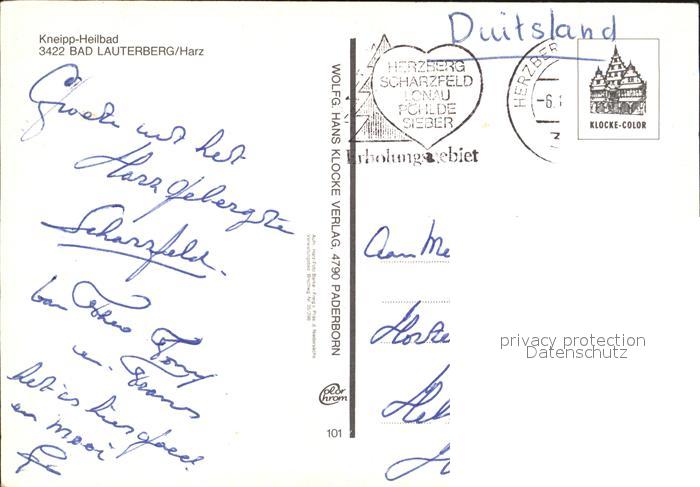 Kneipp-Heilbad
3422 BAD LAUTERBERG/Harz
Groeten uit het
Harzgebergte
Scharzfeld.
van
Tony
en Frans
het is hier goed
en mooi
WOLFG. HANS KLOCKE VERLAG, 4790 PADERBORN
Color chrom
101
HERZBERG
SCHARZFELD
LONAU
POHLDE
SIEBER
Erholungsgebiet
Duitsland
HERZBER
-6.1
KLOCKE-COLOR
Aan
privacy protection
Datenschutz